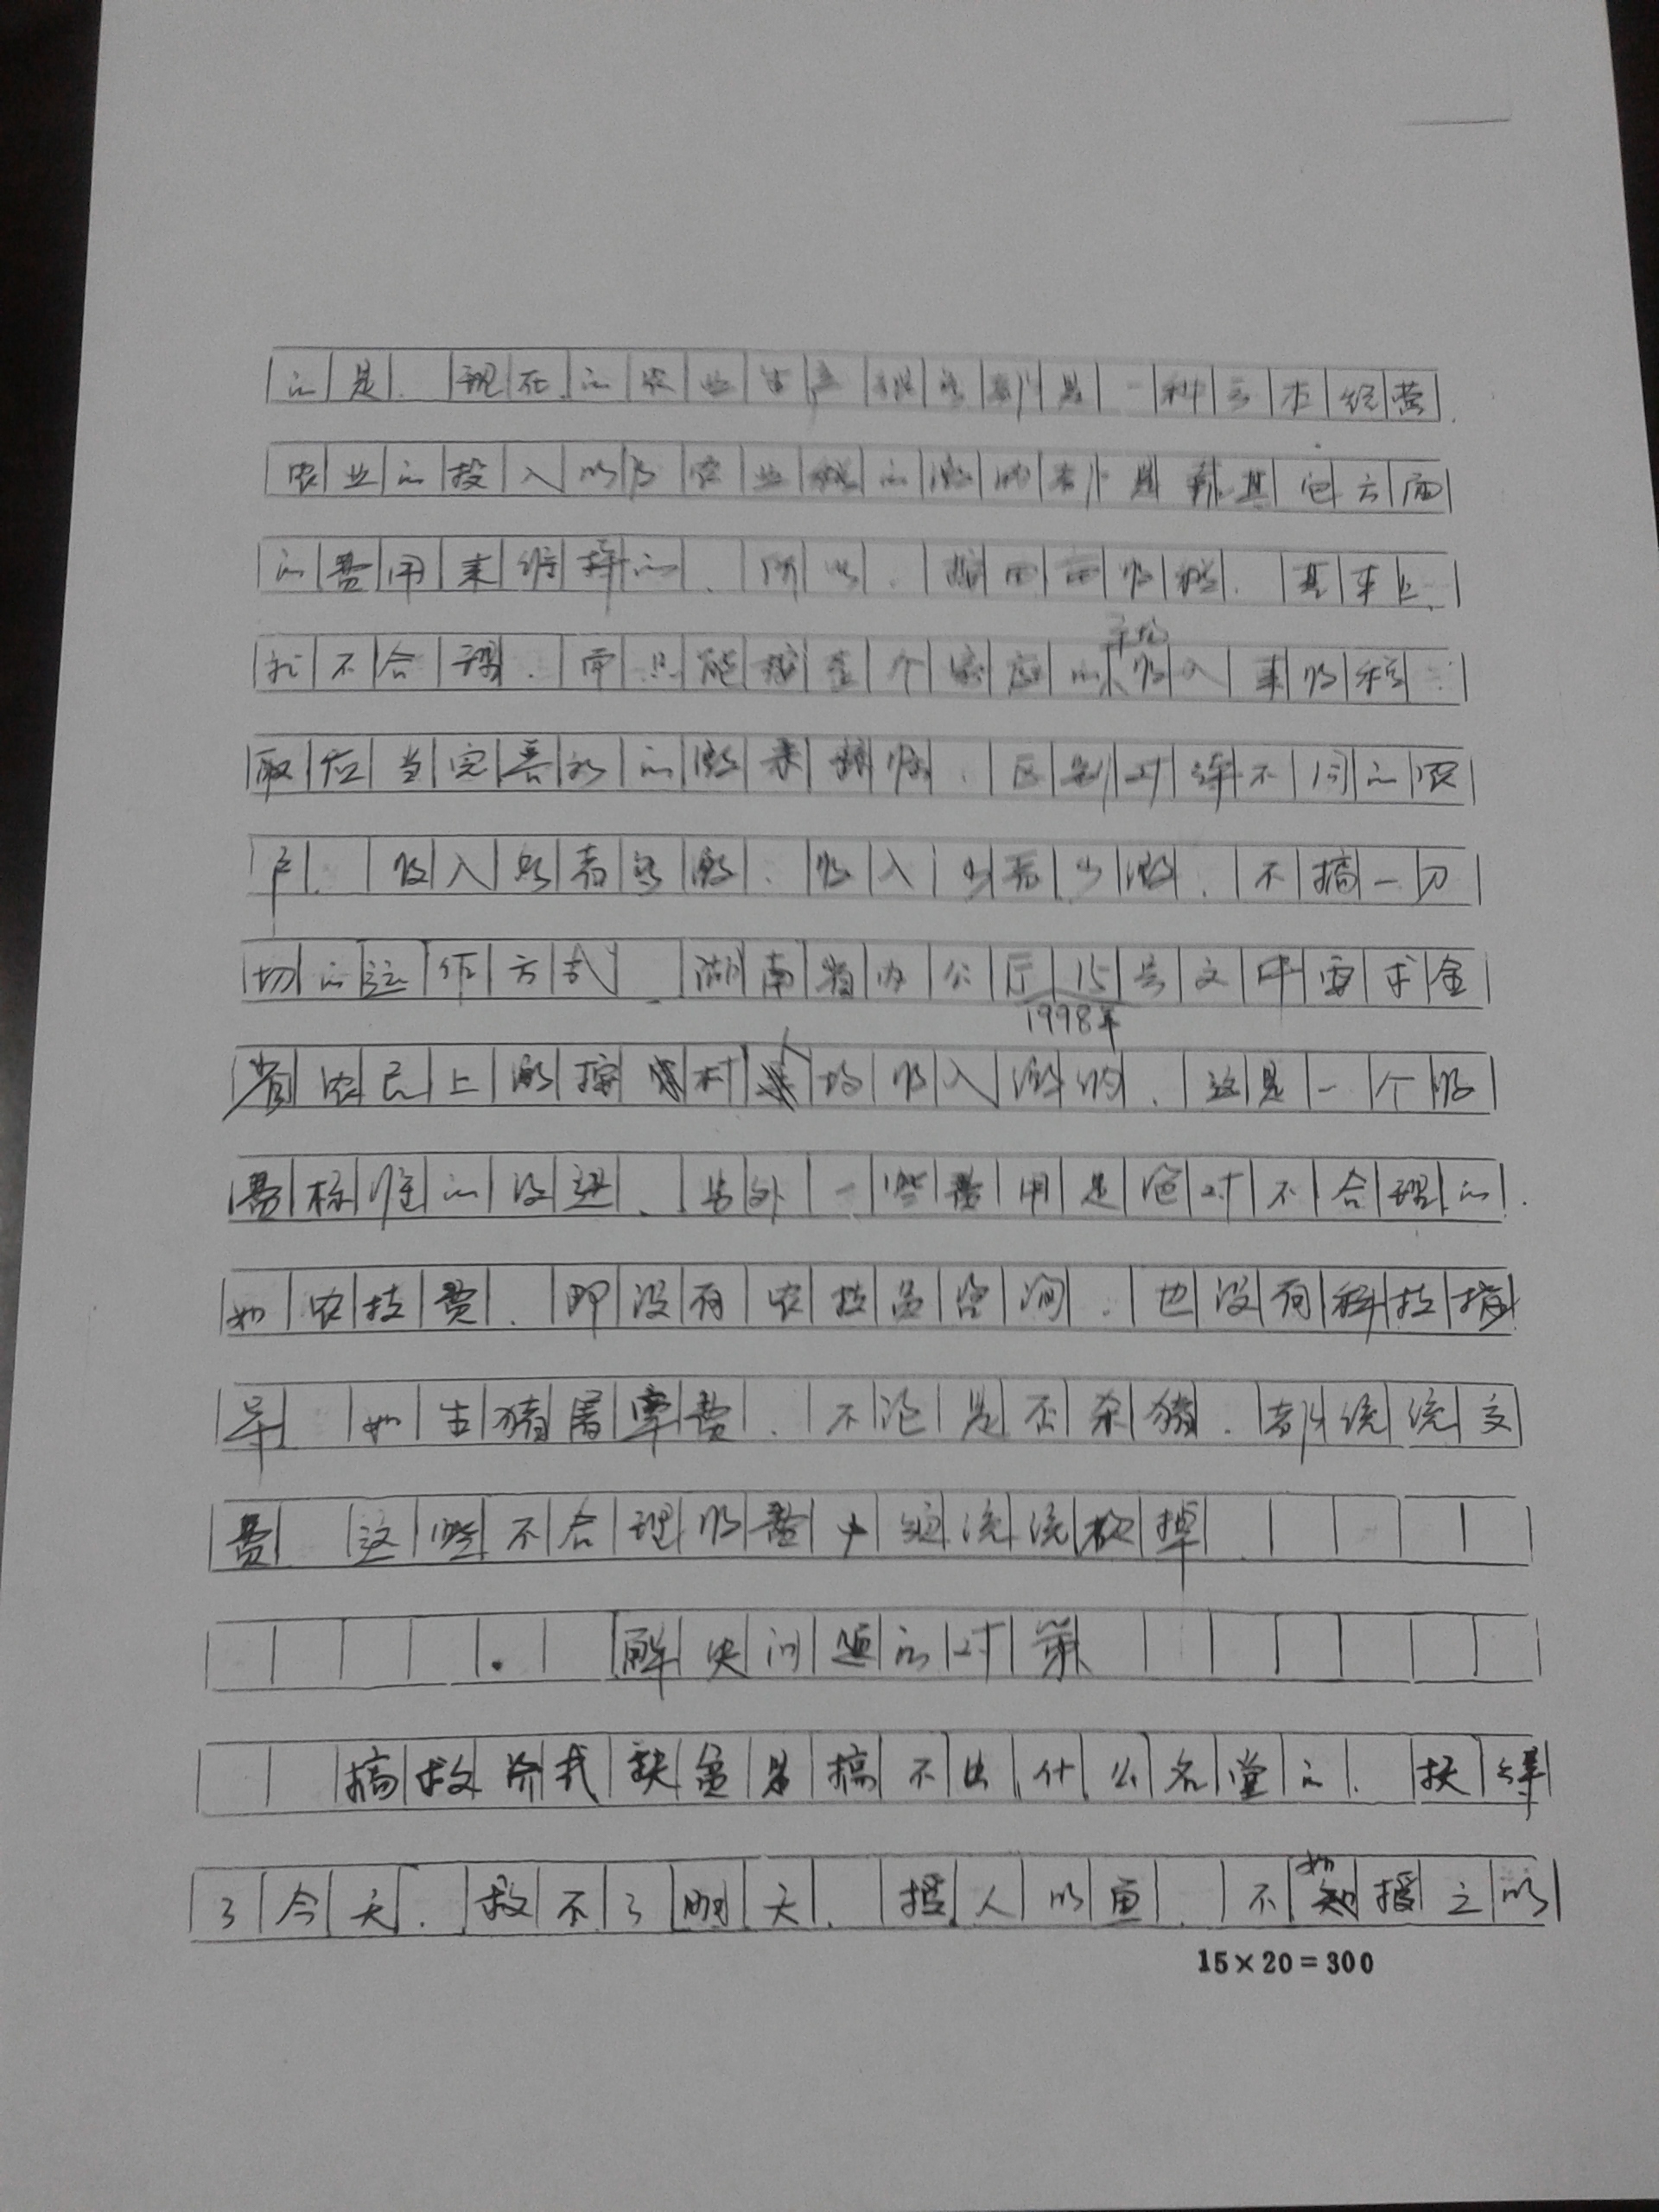 的是，现在的农业生产很多都是一种亏本经营，
农业的投入以及农业税的缴纳都是靠其它方面
的费用来维持的，所以，按田亩收税，基本上
就不合理，而只能按整个家庭的平均收入来收税，
取位当完善的缴来措施，区别对待不同的农
户，收入多者多缴，收入少者少缴，不搞一刀
切的运作方式，湖南省办公厅15号文件要求全
1998年
省农民上缴按村人均收入缴纳，这是一个收
费标准的改进，另外一些费用是绝对不合理的，
如农技费，即没有农技员咨询，也没有科技指
导，如生猪屠宰费，不论是否杀猪，都统统交
费，这些不合理收费应统统砍掉
解决问题的对策
搞救济式扶贫是搞不出什么名堂的，扶得
了今天，救不了明天，授人以鱼，不如授之以
15×20=300